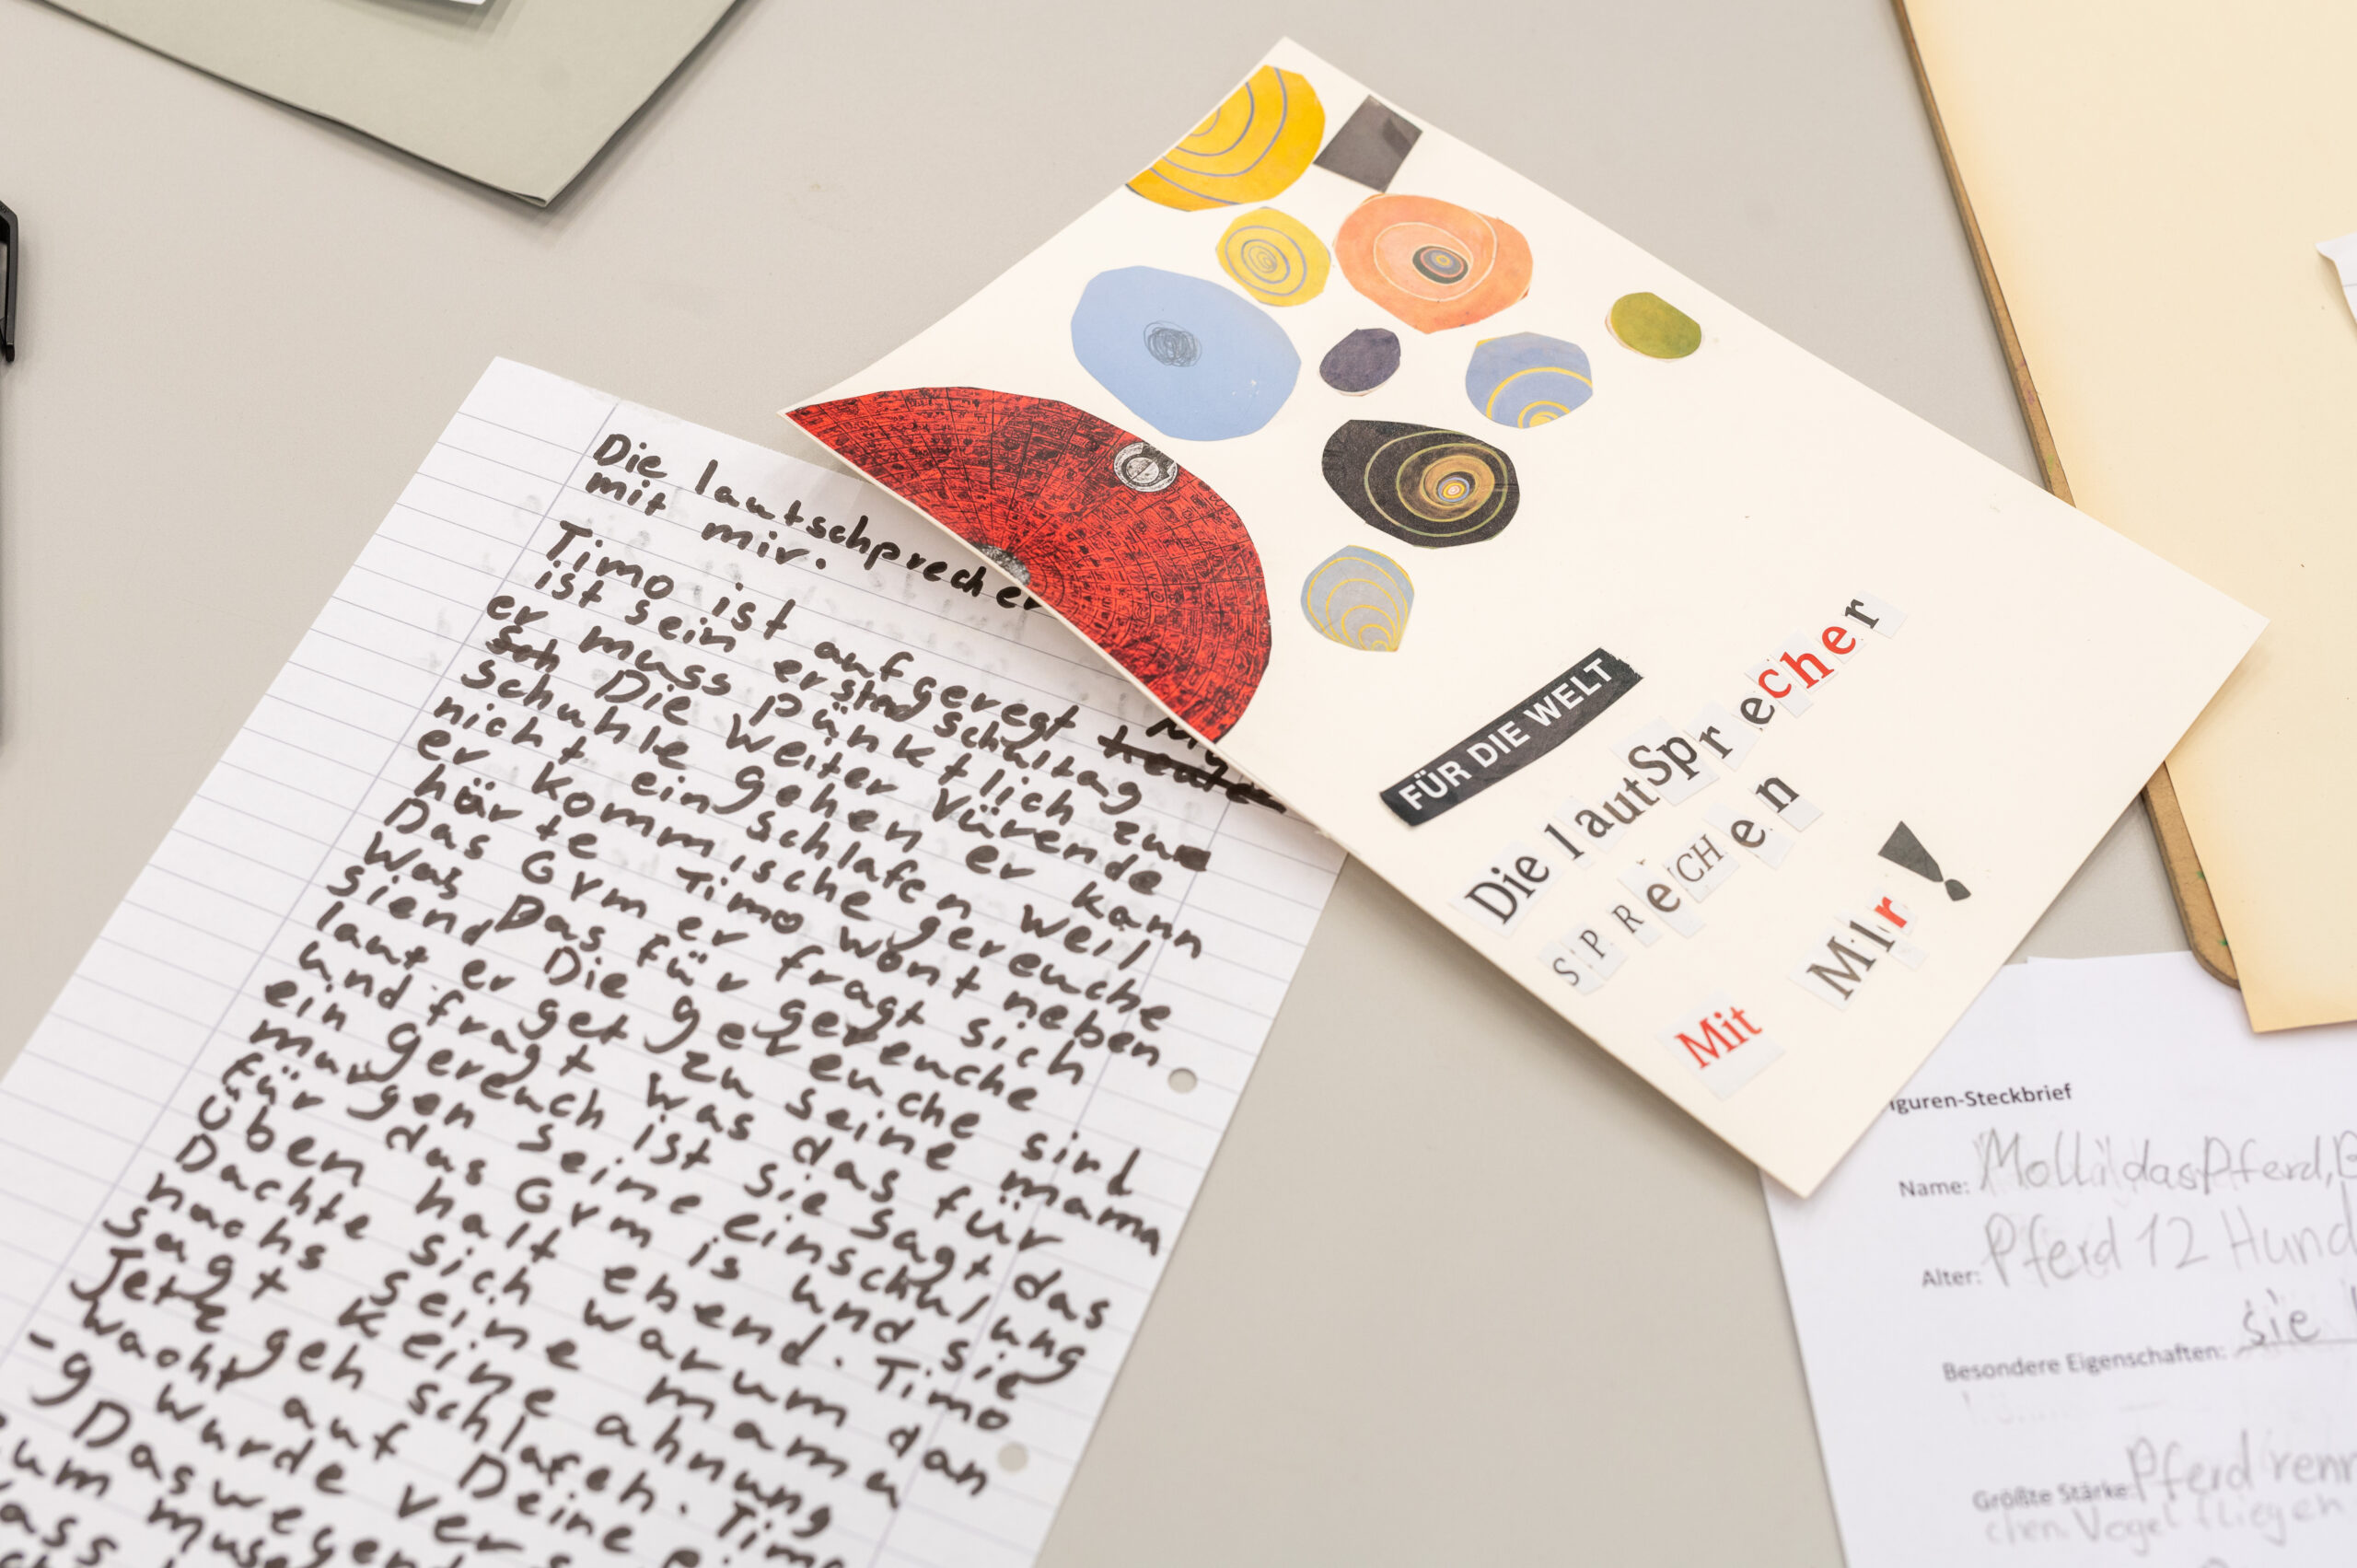 Die lautschprecher
mit mir.
Timo ist aufgeregt heute
ist sein erster schultag
er muss Pünktlich zu
Sch Die weiter Vürende
Schuhle gehen er kann
nicht einschlafen weil
er kommische gereuche
härte Timo wont neben
Das Gym er fragt sich
Was Das für gereuche
siend Die gereuche sind
laut er get zu seine mama
und fragt was das für
ein gereuch ist sie sagt das
murgen seine einschulung
für das Gym is und sie
üben halt ebend. Timo
Dachte sich warum dan
nachs seine mama
sagt keine ahnung
Jetz geh schlafen. Timo
wacht auf Deine
-g wurde ver
Daswegen
zum
FÜR DIE WELT
Die lautSprecher
SPReCHen
Mit MIr!
iguren-Steckbrief
Name: Molli das Pferd,
Alter: Pferd 12 Hund
Besondere Eigenschaften: sie
Größte Stärke: Pferd renn
chen Vogel fliegen